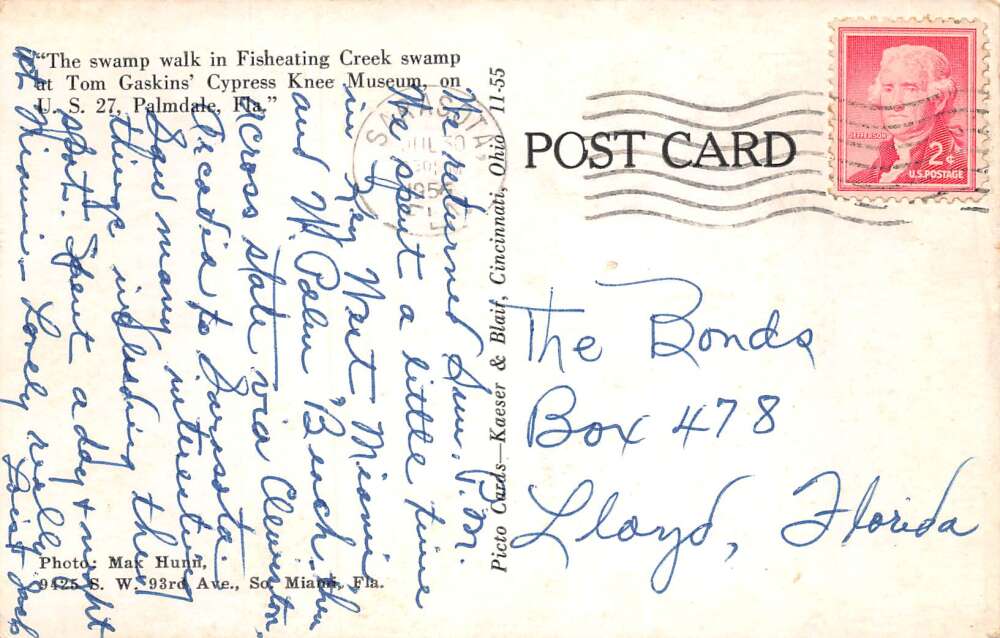 "The swamp walk in Fisheating Creek swamp
at Tom Gaskins' Cypress Knee Museum, on
U. S. 27, Palmdale, Fla."
We returned Sun. P.M.
We spent a little time
in Key West Miami
and W. Palm Beach. then
across state via Clewiston,
Arcadia to Sarasota.
Saw many interesting
things including this
spot. Spent a day & night
at Miami - Lovely really
Lois & Jack
Photo: Mak Hunn,
9425 S. W. 93rd Ave., So. Miami, Fla.
Picto Cards—Kaeser & Blair, Cincinnati, Ohio 11-55
POST CARD
SARASOTA,
JUL 30
JEFFERSON
2¢
U.S. POSTAGE
The Bonds
Box 478
Lloyd, Florida